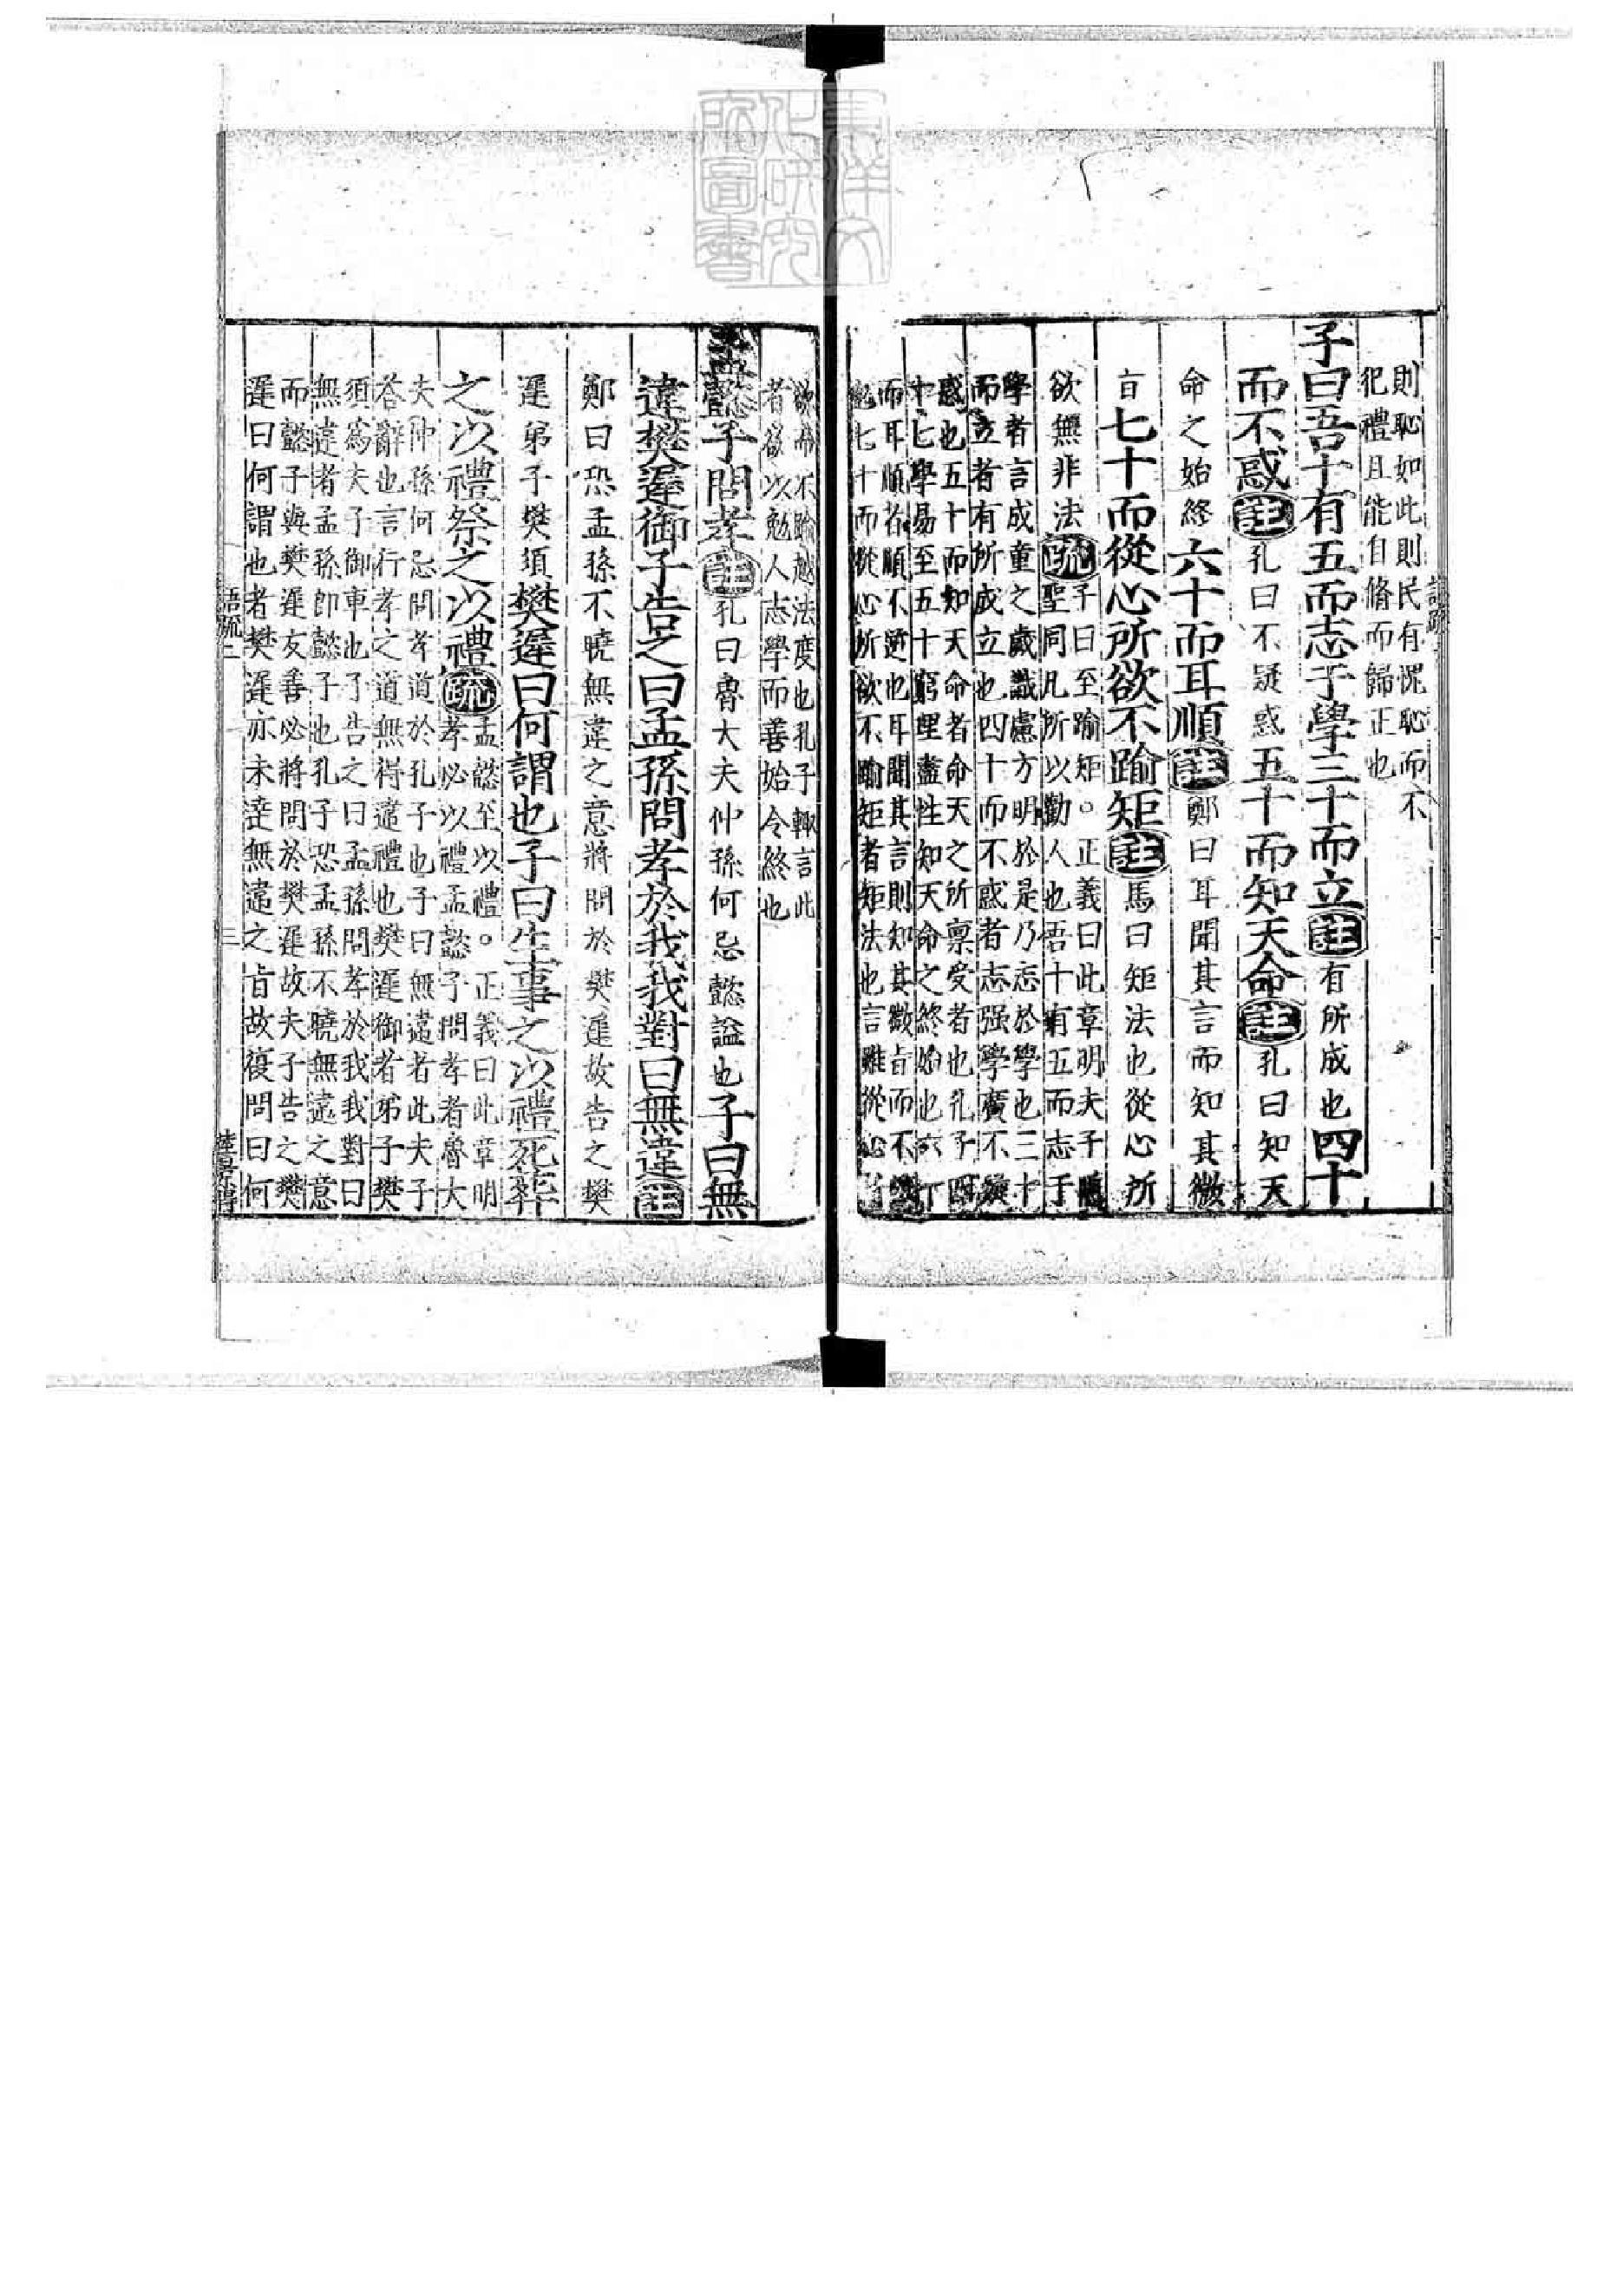 則恥如此則民有愧恥而不
犯禮且能自脩而歸正也
子曰吾十有五而志于學三十而立註有所成也四十
而不惑註孔曰不疑惑五十而知天命註孔曰知天
命之始終六十而耳順註鄭曰耳聞其言而知其微
旨七十而從心所欲不踰矩註馬曰矩法也從心所
欲無非法疏
子曰至踰矩。正義曰此章明夫子隱
聖同凡所以勸人也吾十有五而志于
學者言成童之歲識慮方明於是乃志於學也三十
而立者有所成立也四十而不惑者志强學廣不疑
惑也五十而知天命者命天之所禀受者也孔子四
十七學易至五十窮理盡性知天命之終始也六十
而耳順者順不逆也耳聞其言則知其微旨而不
也七十而從心所欲不踰矩者矩法也言雖從心
欲而不踰越法度也孔子輒言此
者欲以勉人志學而善始令終也
孟懿子問孝註孔曰魯大夫仲孫何忌懿謚也子曰無
違樊遲御子告之曰孟孫問孝於我我對曰無違註
鄭曰恐孟孫不曉無違之意將問於樊遲故告之樊
遲弟子樊須樊遲曰何謂也子曰生事之以禮死葬
之以禮祭之以禮疏
孟懿至以禮。正義曰此章明
孝必以禮孟懿子問孝者魯大
夫仲孫何忌問孝道於孔子也子曰無違者此夫子
荅辭也言行孝之道無得違禮也樊遲御者弟子樊
須爲夫子御車也子告之曰孟孫問孝於我我對曰
無違者孟孫即懿子也孔子恐孟孫不曉無違之意
而懿子與樊遲友善必將問於樊遲故夫子告之樊
遲曰何謂也者樊遲亦未達無違之旨故復問曰何
語疏二
三